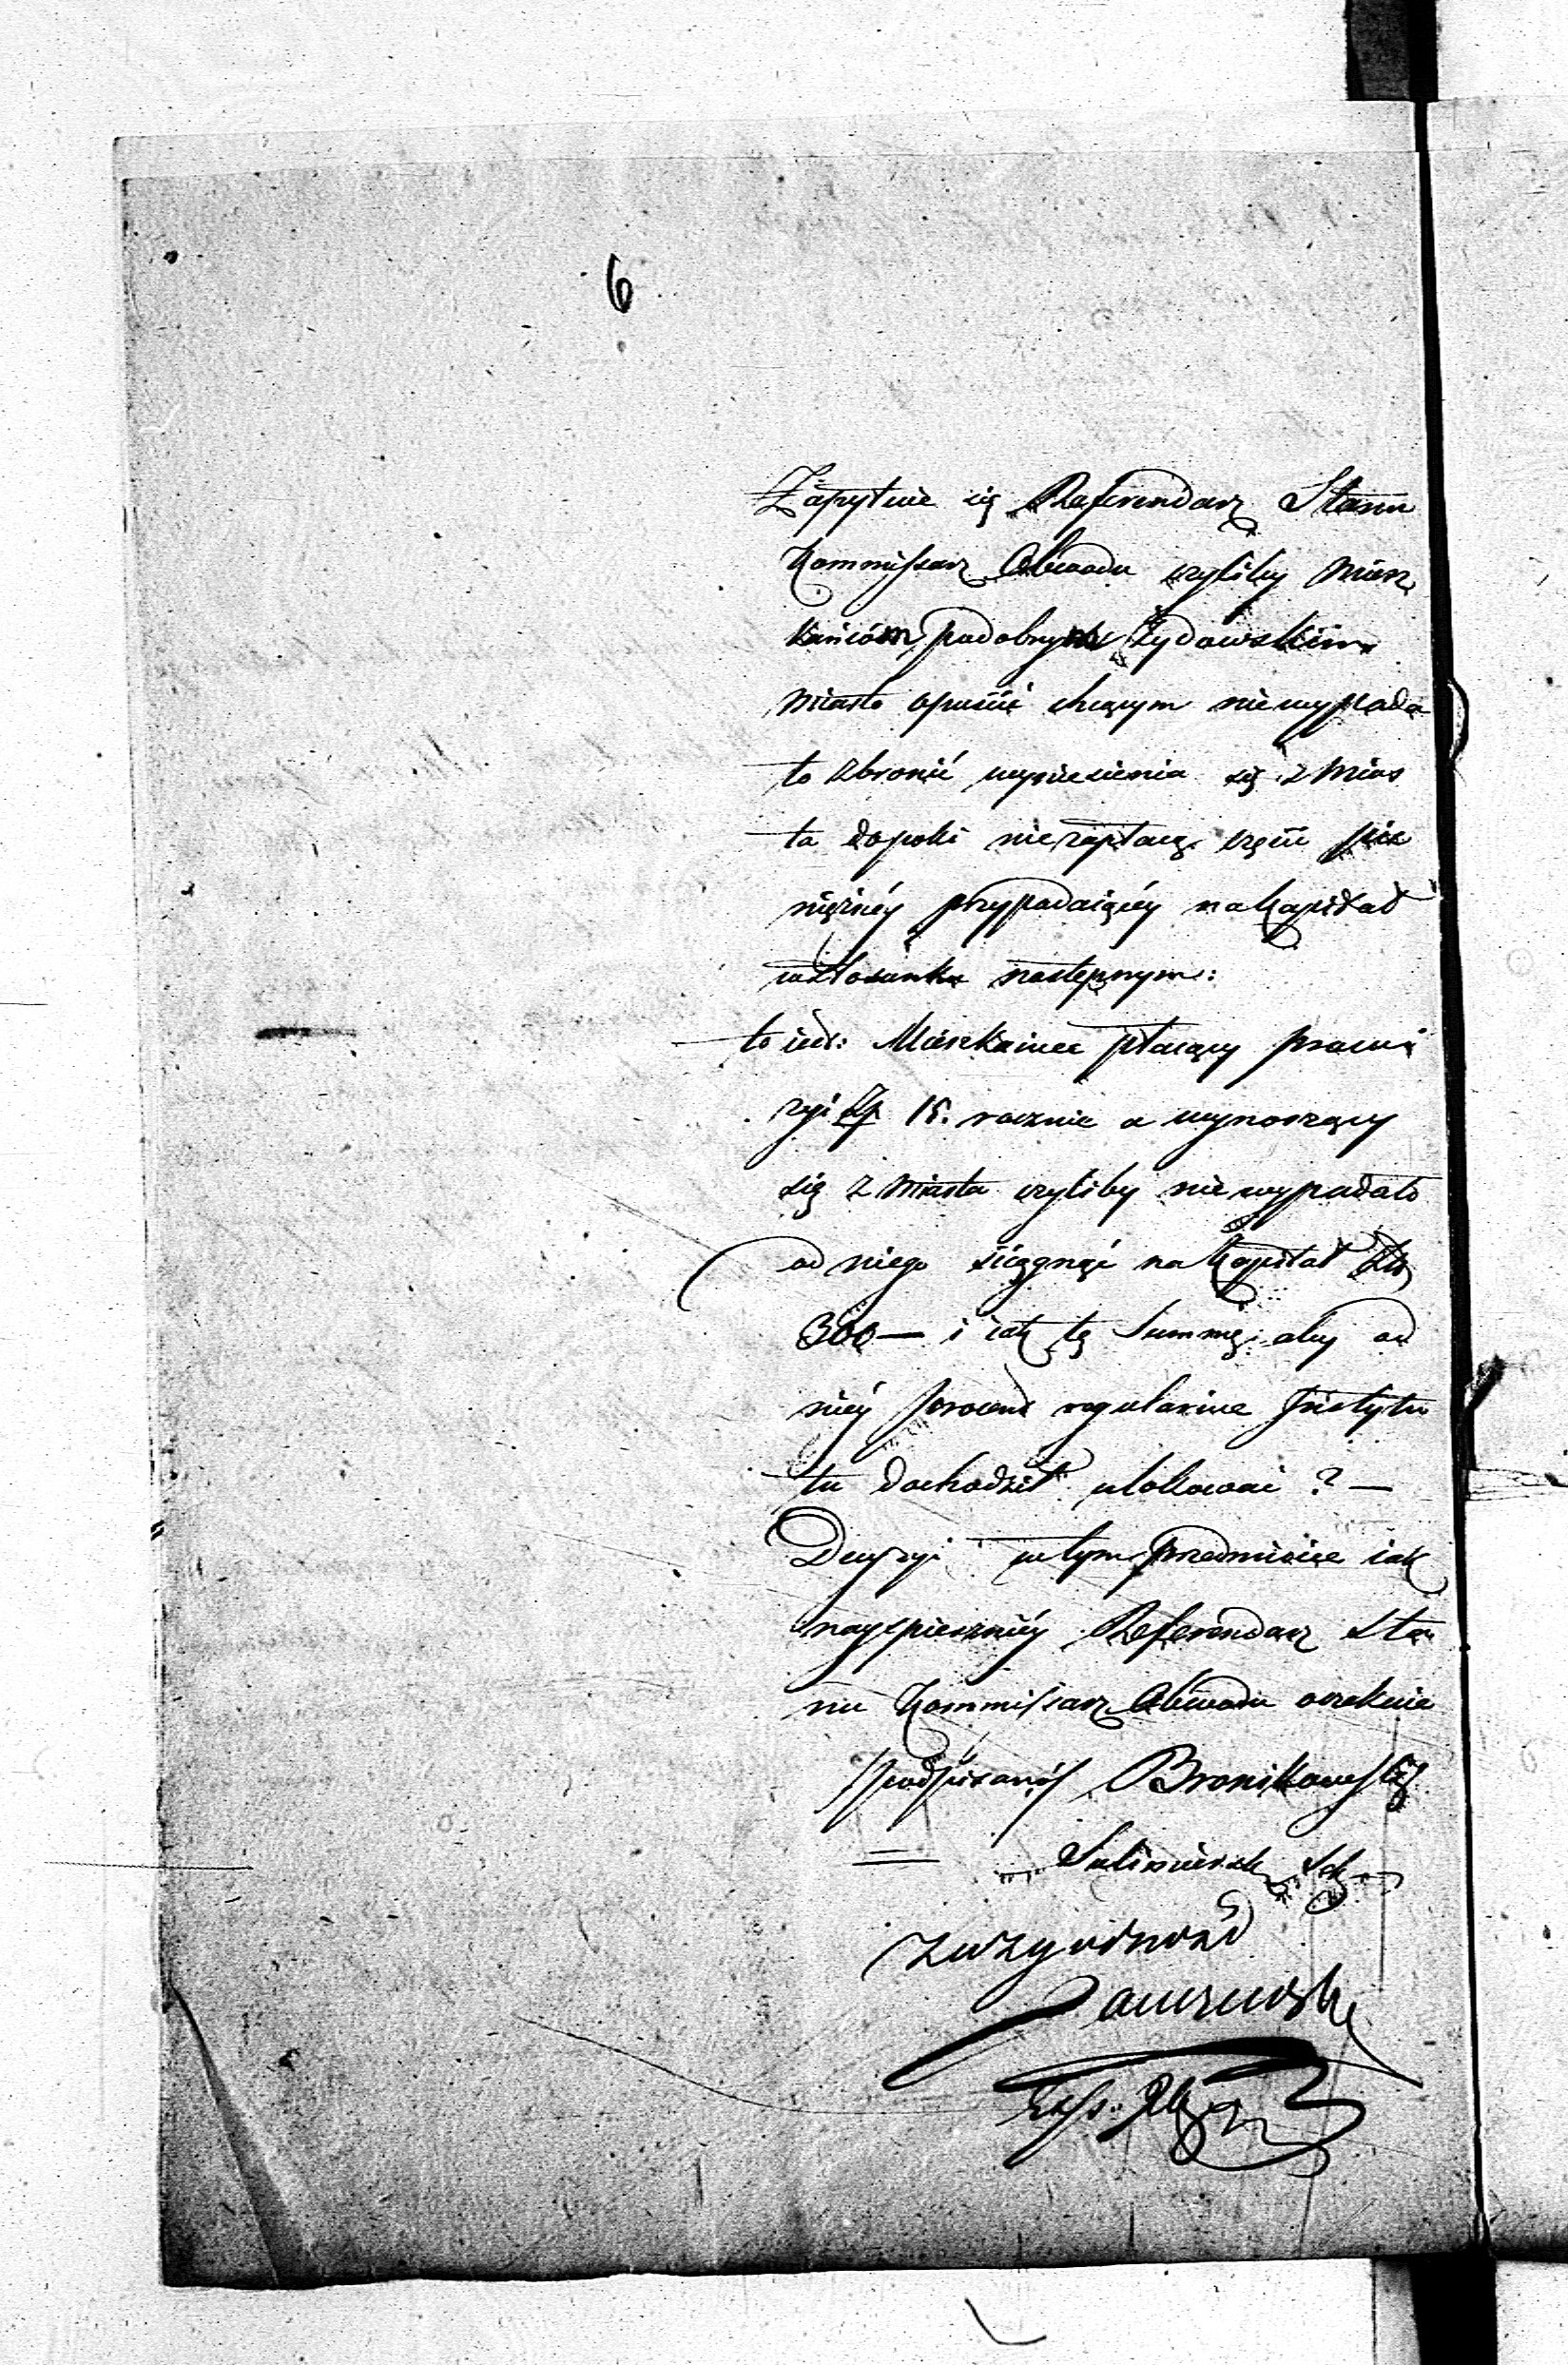 6
Zapytuie się Referendarz Stanu
Kommissarz Obwodu czyliby miesz
kańcóm podobnym Żydowskim
miasto opuścić chcącym niewypada
to zbronić wyniesienia się z mias
ta dopoki niezapłacą częśći pie
niężnéy przypadaiącéy na kapitał
wstosunku następnym:
to iest: Mieszkaniec płacący prowi
zyi Zł 15. rocznie a wynoszący
się z miasta czyliby nie wypadało
od niego śćiągnąć na Kapitał Zło
300 — i iak tę Summę, aby od
niéy procent regularnie Instytu
tu dochodził ulokować ? —
Decyzyi w tym przedmiocie iak
nayspieszniéy Referendarz Sta
nu Kommissarz Obwodu oczekuie
/podpisano/ Bronikowski
Sulimierski Sek
za zgodność